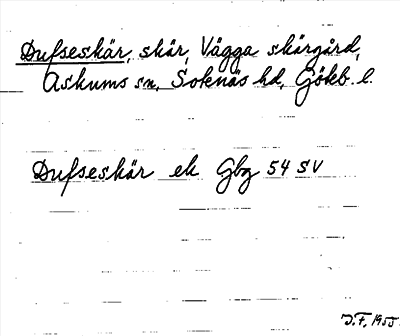 Dufseskär, skär, Vägga skärgård,
Askums sn, Sotenäs hd, Göteb. l.
Dufseskär ek Gbg 54 SV
J.F, 1955